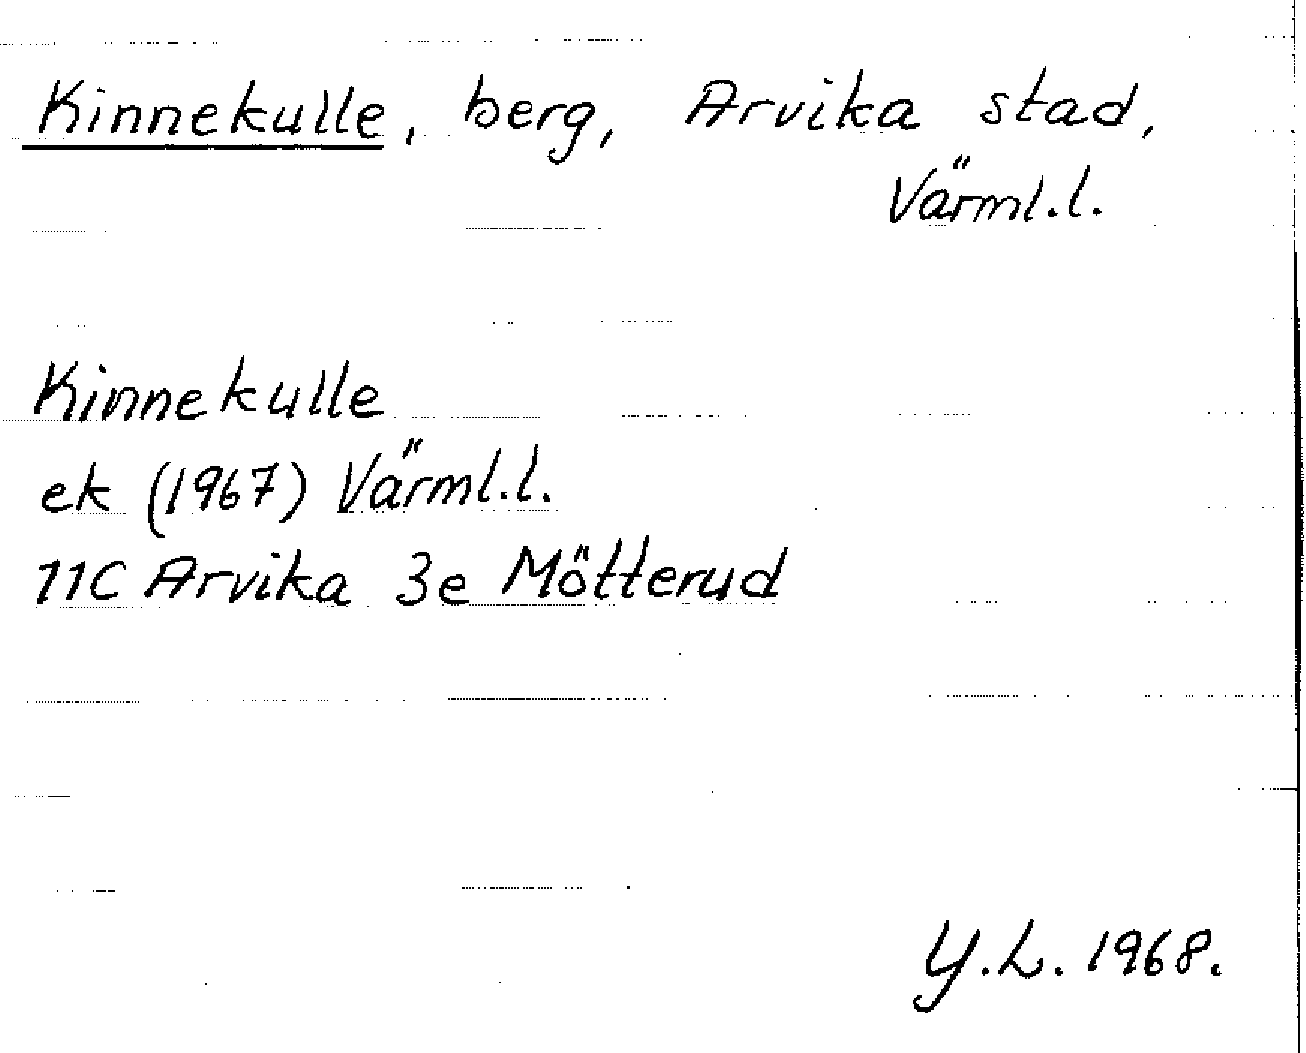 Kinnekulle, berg, Arvika stad,
Värml.l.
Kinnekulle
ek (1967) Värml.l.
11C Arvika 3e Mötterud
Y.L. 1968.